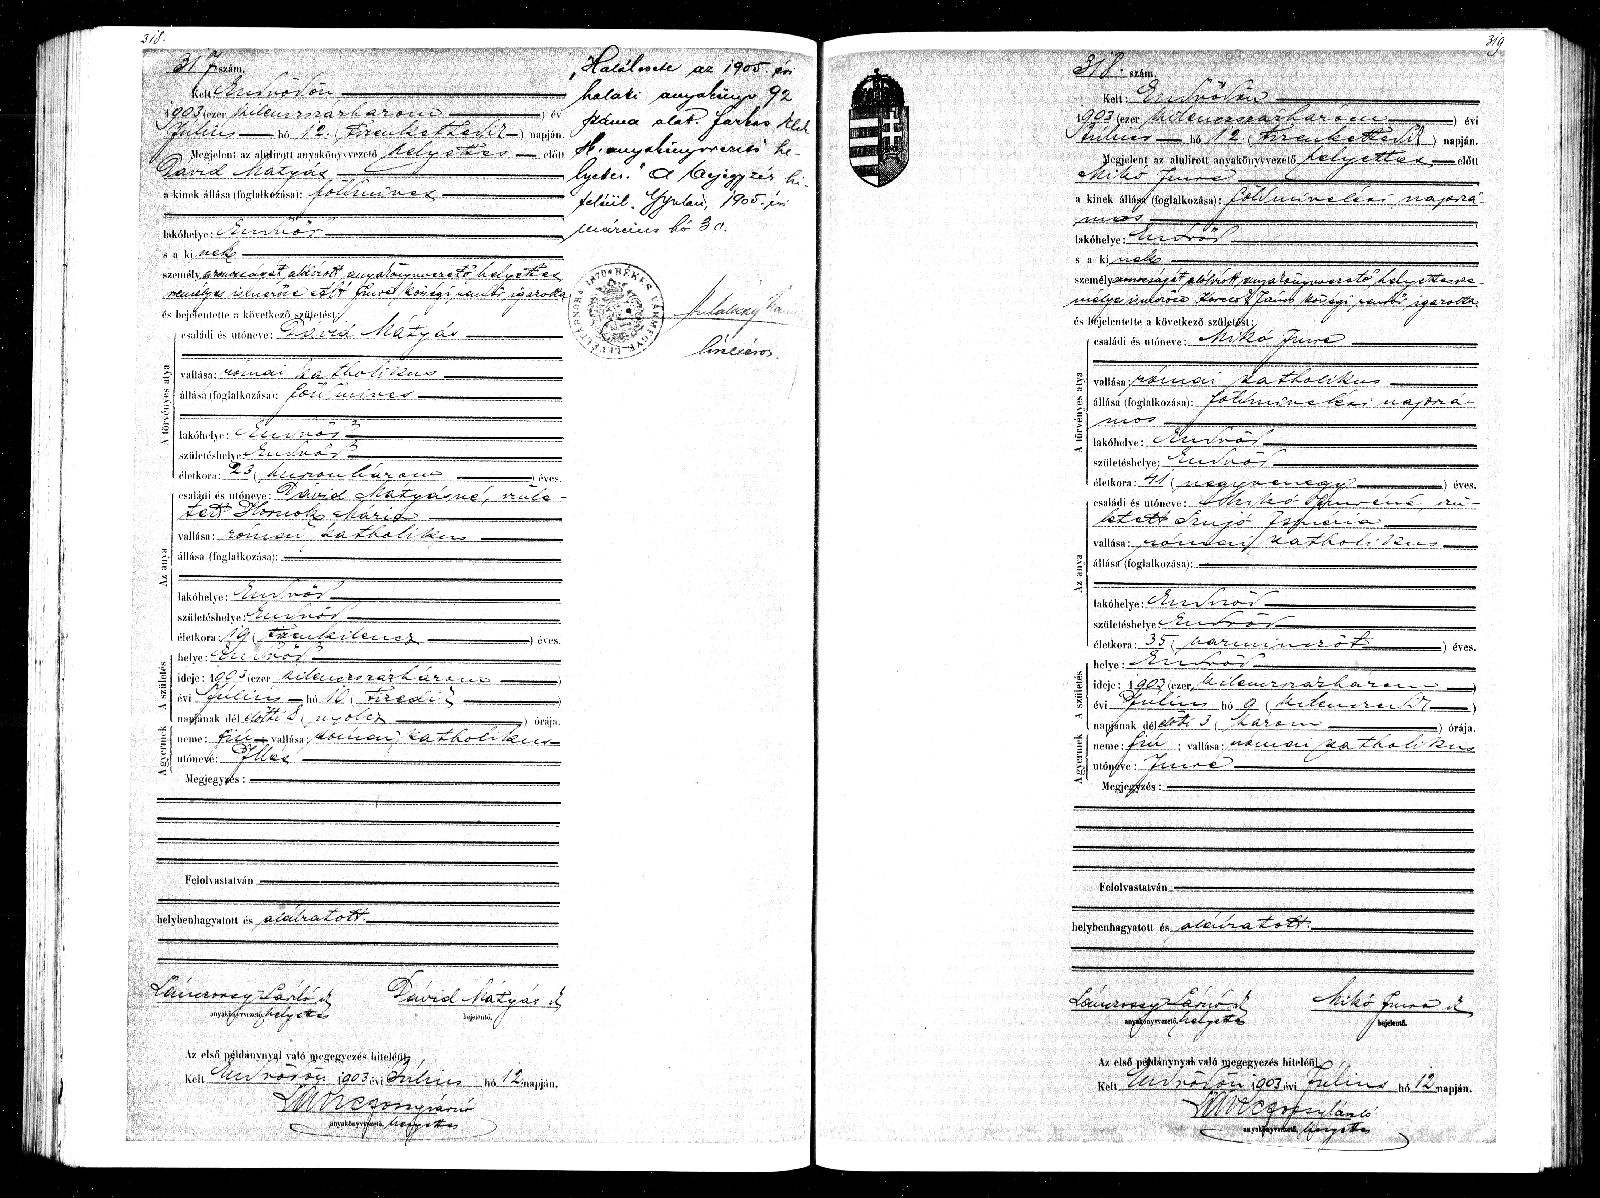 318.
317 szám.
Kelt Endrődön
1903 (ezer kilencszázhárom) év
Július hó 12. (tizenkettedik) napján.
Megjelent az alulirott anyakönyvvezető helyettes előtt
Dávid Mátyás
a kinek állása (foglalkozása): földmives
lakóhelye: Endrőd
s a ki nek
személyazonosságát alólirott anyakönyvvezető helyettes
személyes ismerőse Imre községi rendőr igazolta
és bejelentette a következő születést:
A törvényes atya
családi és utóneve: Dávid Mátyás
vallása: római katholikus
állása (foglalkozása): földmives
lakóhelye: Endrőd
születéshelye: Endrőd
életkora: 23 (huszonhárom) éves.
Az anya
családi és utóneve: Dávid Mátyásné, szüle-
tett Hornok Mária
vallása: római katholikus
állása (foglalkozása):
lakóhelye: Endrőd
születéshelye: Endrőd
életkora: 19 (tizenkilencz) éves.
A születés
helye: Endrőd
ideje: 1903 (ezer kilencszázhárom)
évi Július hó 10 (tizedik)
napjának délelőtti 8 (nyolcz) órája.
A gyermek
neme: fiu vallása: római katholikus
utóneve: Illés
Megjegyzés:
Felolvastatván
helybenhagyatott és aláiratott.
Dávid Mátyás sk
anyakönyvvezető helyettes
bejelentő.
Az első példánynyal való megegyezés hiteléül
Kelt Endrődön 1903 évi Július hó 12 napján.
anyakönyvvezető helyettes
„Halálesete az 1905. évi
halotti anyakönyv 92
száma alatt. Farkas
H. anyakönyvvezető he-
lyettes." A bejegyzés hi-
teléül. Gyulán, 1905. évi
március hó 30.
BÉKÉS VÁRMEGYE LEVÉLTÁRNOKA 1870
319
318. szám.
Kelt: Endrődön
1903 (ezer kilencszázhárom) évi
Július hó 12 (tizenkettedik) napján.
Megjelent az alulirott anyakönyvvezető helyettes előtt
Mikó Imre
a kinek állása (foglalkozása): földmivelési napszá-
mos
lakóhelye: Endrőd
s a ki nek
személyazonosságát alólirott anyakönyvvezető helyettes sze-
mélyes ismerőse János községi rendőr igazolta
és bejelentette a következő születést:
A törvényes atya
családi és utóneve: Mikó Imre
vallása: római katholikus
állása (foglalkozása): földmivelési napszá-
mos
lakóhelye: Endrőd
születéshelye: Endrőd
életkora: 41 (negyvenegy) éves.
Az anya
családi és utóneve: Mikó Imréné, szü-
letett Szujó
vallása: római katholikus
állása (foglalkozása):
lakóhelye: Endrőd
születéshelye: Endrőd
életkora: 35 (harminczöt) éves.
A születés
helye: Endrőd
ideje: 1903 (ezer kilencszázhárom)
évi Július hó 9 (kilenczedik)
napjának délelőtti 3 (három) órája.
A gyermek
neme: fiu; vallása: római katholikus
utóneve: Imre
Megjegyzés:
Felolvastatván
helybenhagyatott és aláiratott.
Mikó Imre sk
anyakönyvvezető helyettes
bejelentő.
Az első példánynyal való megegyezés hiteléül
Kelt Endrődön 1903 évi Július hó 12 napján.
anyakönyvvezető helyettes